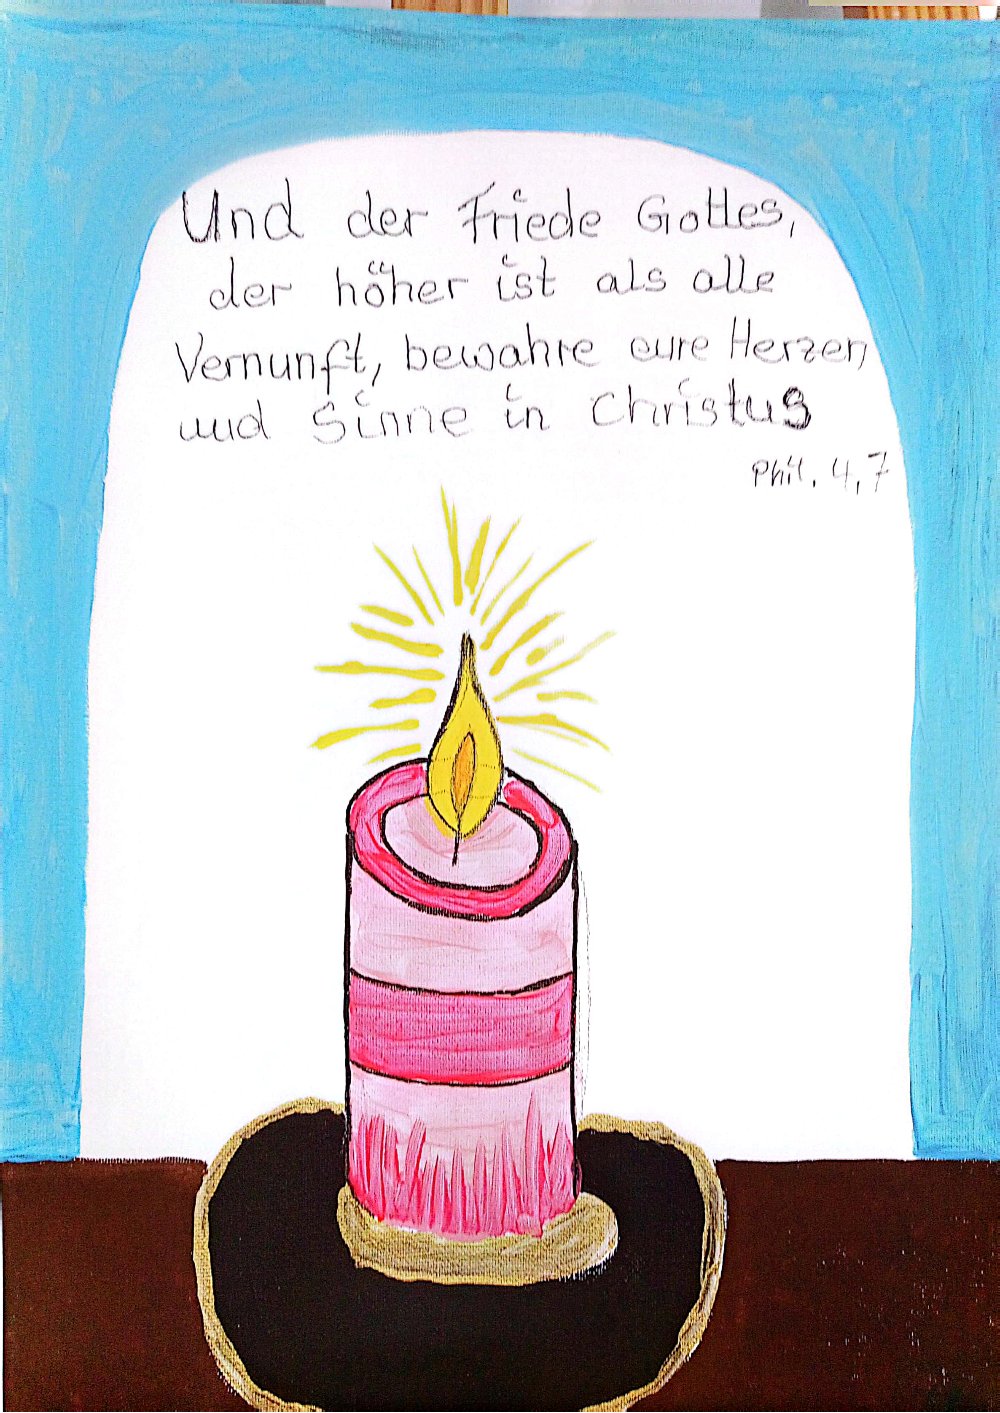 Und der Friede Gottes,
der höher ist als alle
Vernunft, bewahre eure Herzen
und Sinne in Christus
Phil. 4,7